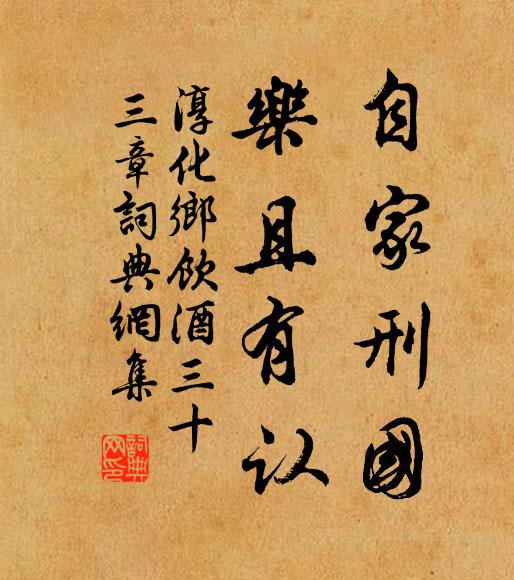 自家刑國
樂且有认
淳化鄉飲酒三十
三章詞典網集
詞典網印